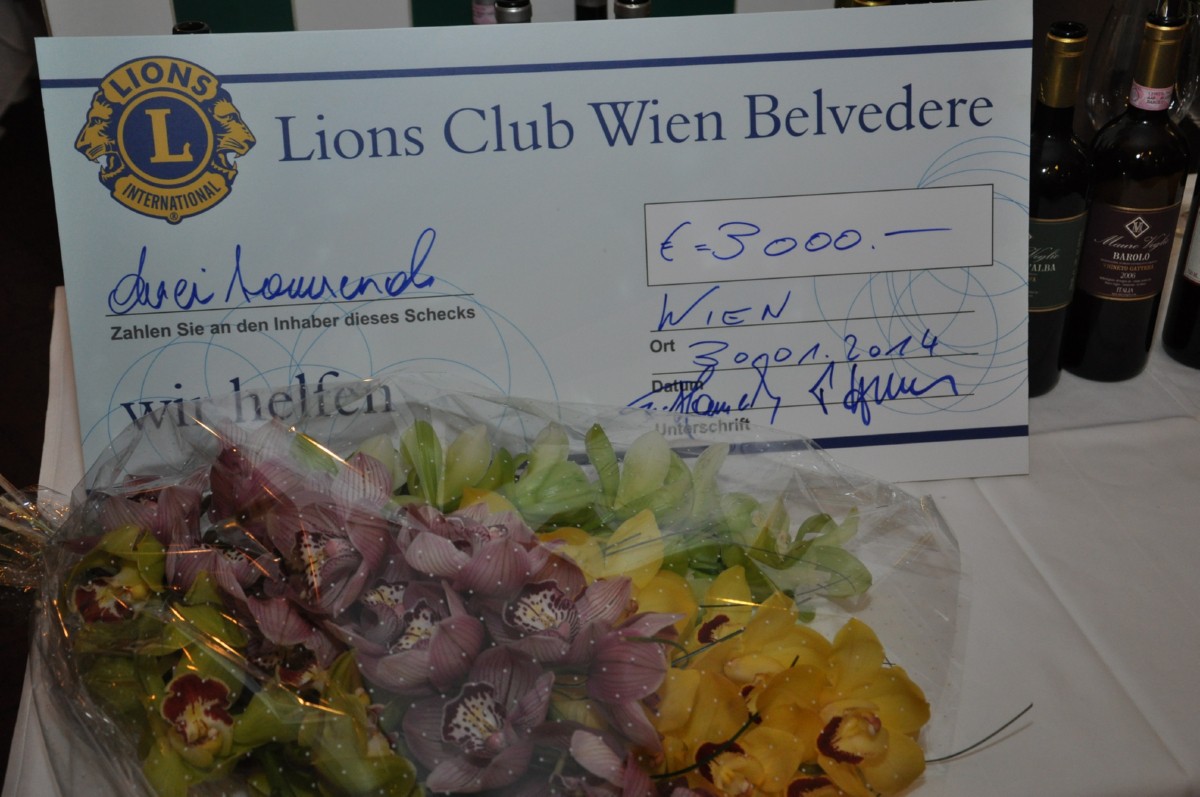 LIONS
L
INTERNATIONAL
®
Lions Club Wien Belvedere
€=3000.—
drei tausend
Zahlen Sie an den Inhaber dieses Schecks
WIEN
Ort
30.01.2014
Datum
Unterschrift
wir helfen
M
BAROLO
2006
ITALIA